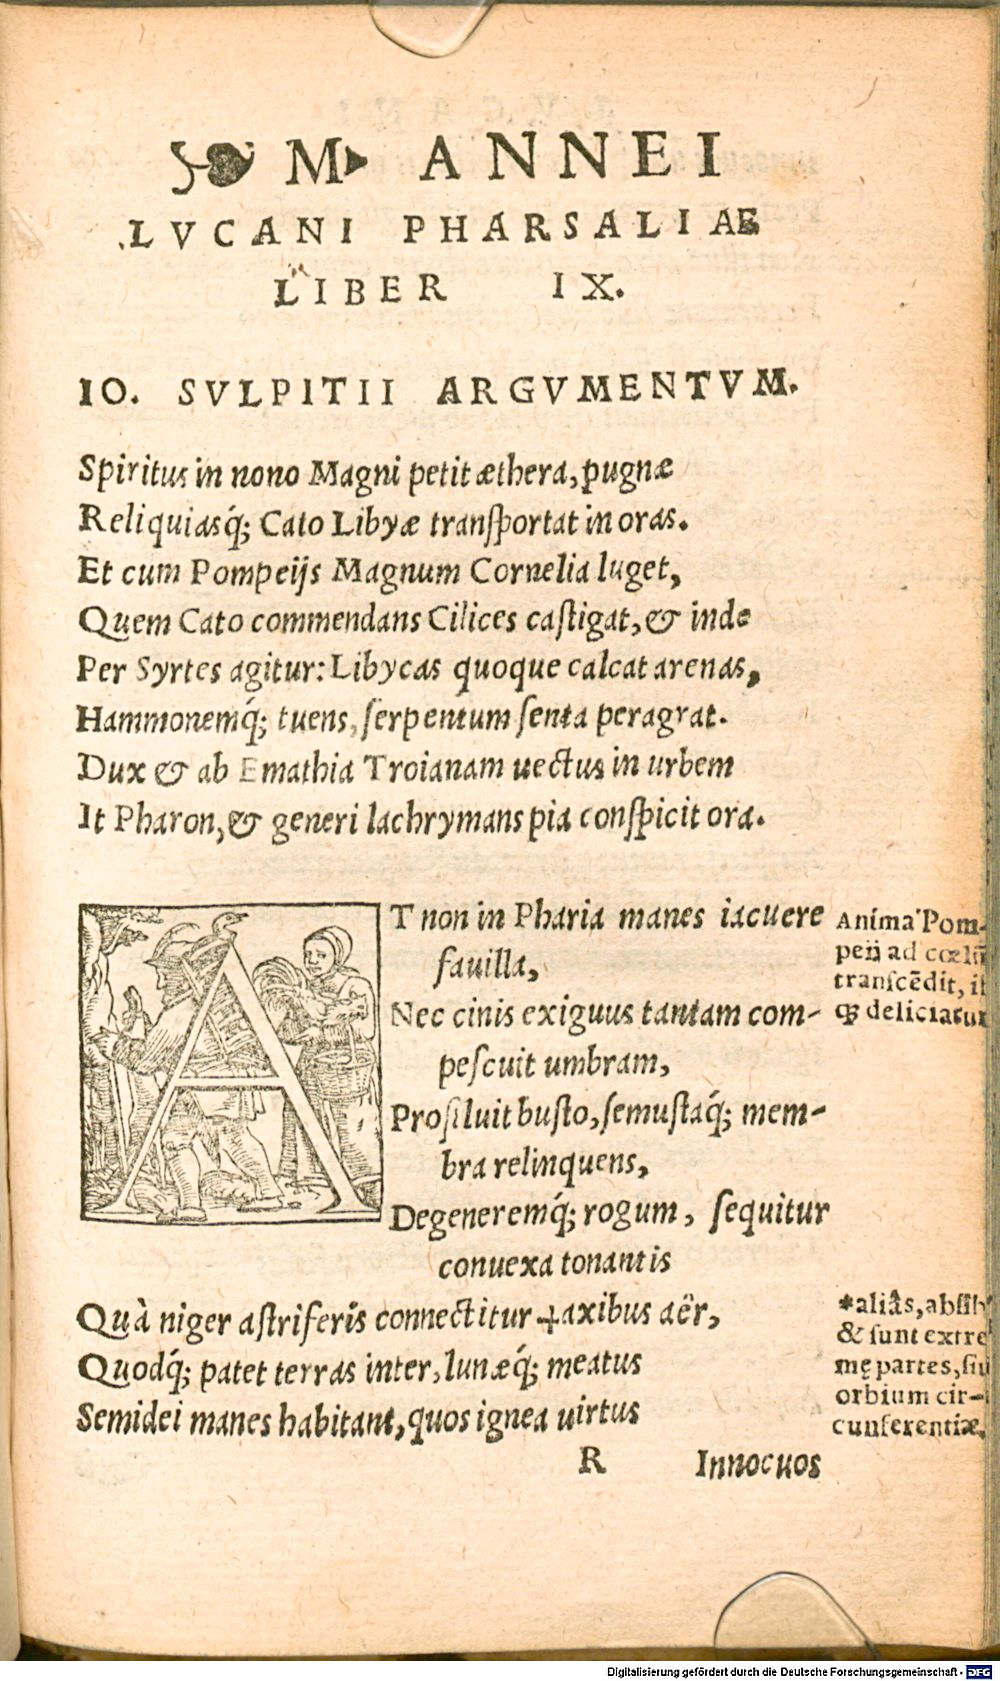 M ANNEI
LVCANI PHARSALIAE
LIBER IX.
IO. SVLPITII ARGVMENTVM.
Spiritus in nono Magni petit æthera, pugnæ
Reliquiasq́; Cato Libyæ tranſportat in oras.
Et cum Pompeijs Magnum Cornelia luget,
Quem Cato commendans Cilices caſtigat, & inde
Per Syrtes agitur: Libycas quoque calcat arenas,
Hammonemq́; tuens, ſerpentum ſenta peragrat.
Dux & ab Emathia Troianam uectus in urbem
It Pharon, & generi lachrymans pia conſpicit ora.
AT non in Pharia manes iacuere
fauilla,
Nec cinis exiguus tantam com-
peſcuit umbram,
Proſiluit buſto, ſemuſtaq́; mem-
bra relinquens,
Degeneremq́; rogum, ſequitur
conuexa tonantis
Quà niger aſtriferis connectitur +axibus aër,
Quodq́; patet terras inter, lunæq́; meatus
Semidei manes habitant, quos ignea uirtus
R Innocuos
Anima Pom-
peij ad cœlũ
tranſcẽdit, i
q; deliciatur
*aliâs, abſib
& ſunt extre
mę partes, ſiu
orbium cir-
cunferentiæ.
Digitalisierung gefördert durch die Deutsche Forschungsgemeinschaft - DFG